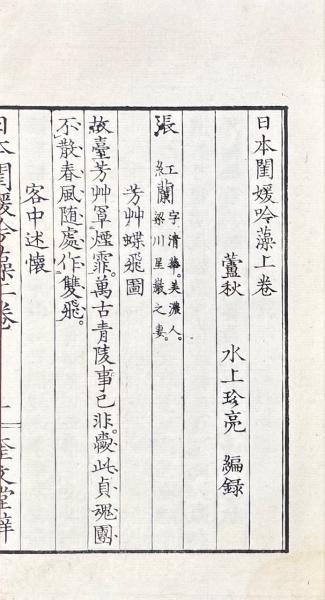 日本閨媛吟藻上卷
蘆秋 水上珍亮 編録
張紅蘭 字清華。美濃人。
梁川星巖之妻。
芳艸蝶飛圖
故臺芳艸罩煙霏。萬古青陵事已非。此貞魂團
不散春風随處作雙飛。
客中述懷
日本閨媛吟藻上卷 一 奎文堂梓